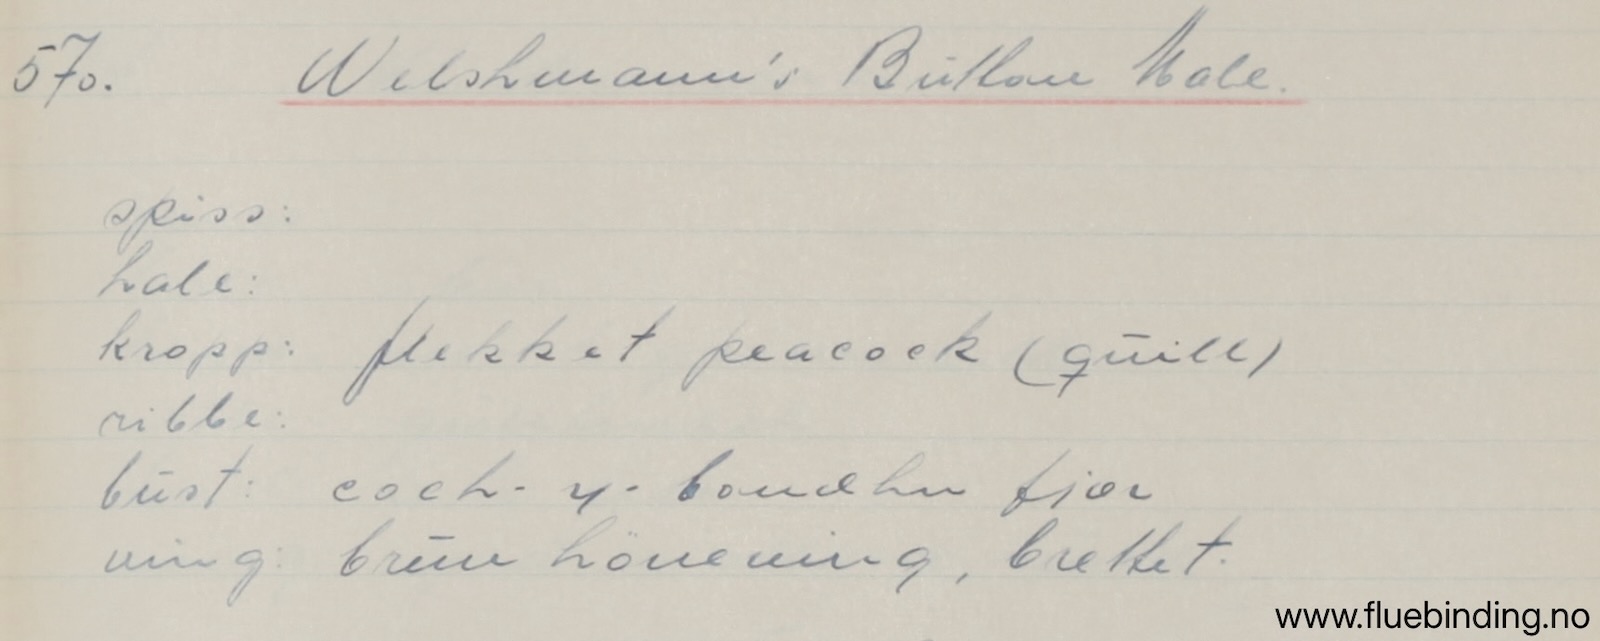 570. Welshmann's Button Male.
spiss:
hale:
kropp: flekket peacock (quill)
ribbe:
bust: coch-y-bondhu fjær
ving: brun höneving, brettet.
www.fluebinding.no